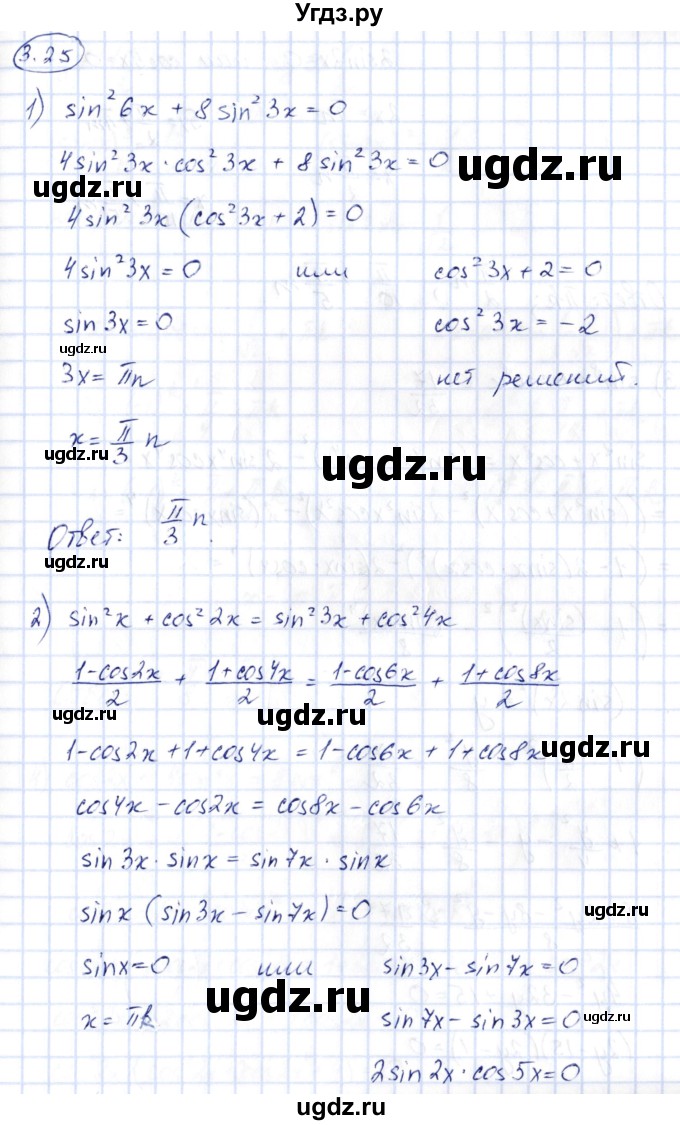 Угдз.ру
3.25
1) sin²6x + 8sin²3x = 0
4sin²3x·cos²3x + 8sin²3x = 0
ugdz.ru ugdz.ru
4sin²3x(cos²3x+2)=0
4sin²3x=0 или cos²3x+2=0
sin3x=0 cos²3x=-2
ugdz.ru
3x=πn нет решений.
x=π/3 n
ugdz.ru ugdz.ru
Ответ: π/3 n.
ugdz.ru
2) sin²x + cos²2x = sin²3x + cos²4x
(1-cos2x)/2 + (1+cos4x)/2 = (1-cos6x)/2 + (1+cos8x)/2
ugdz.ru ugdz.ru
1-cos2x+1+cos4x = 1-cos6x+1+cos8x
ugdz.ru
cos4x-cos2x=cos8x-cos6x
sin3x·sinx=sin7x·sinx
sinx(sin3x-sin7x)=0
ugdz.ru
sinx=0 или sin3x-sin7x=0
ugdz.ru
x=πk sin7x-sin3x=0
ugdz.ru
2sin2x·cos5x=0
ugdz.ru